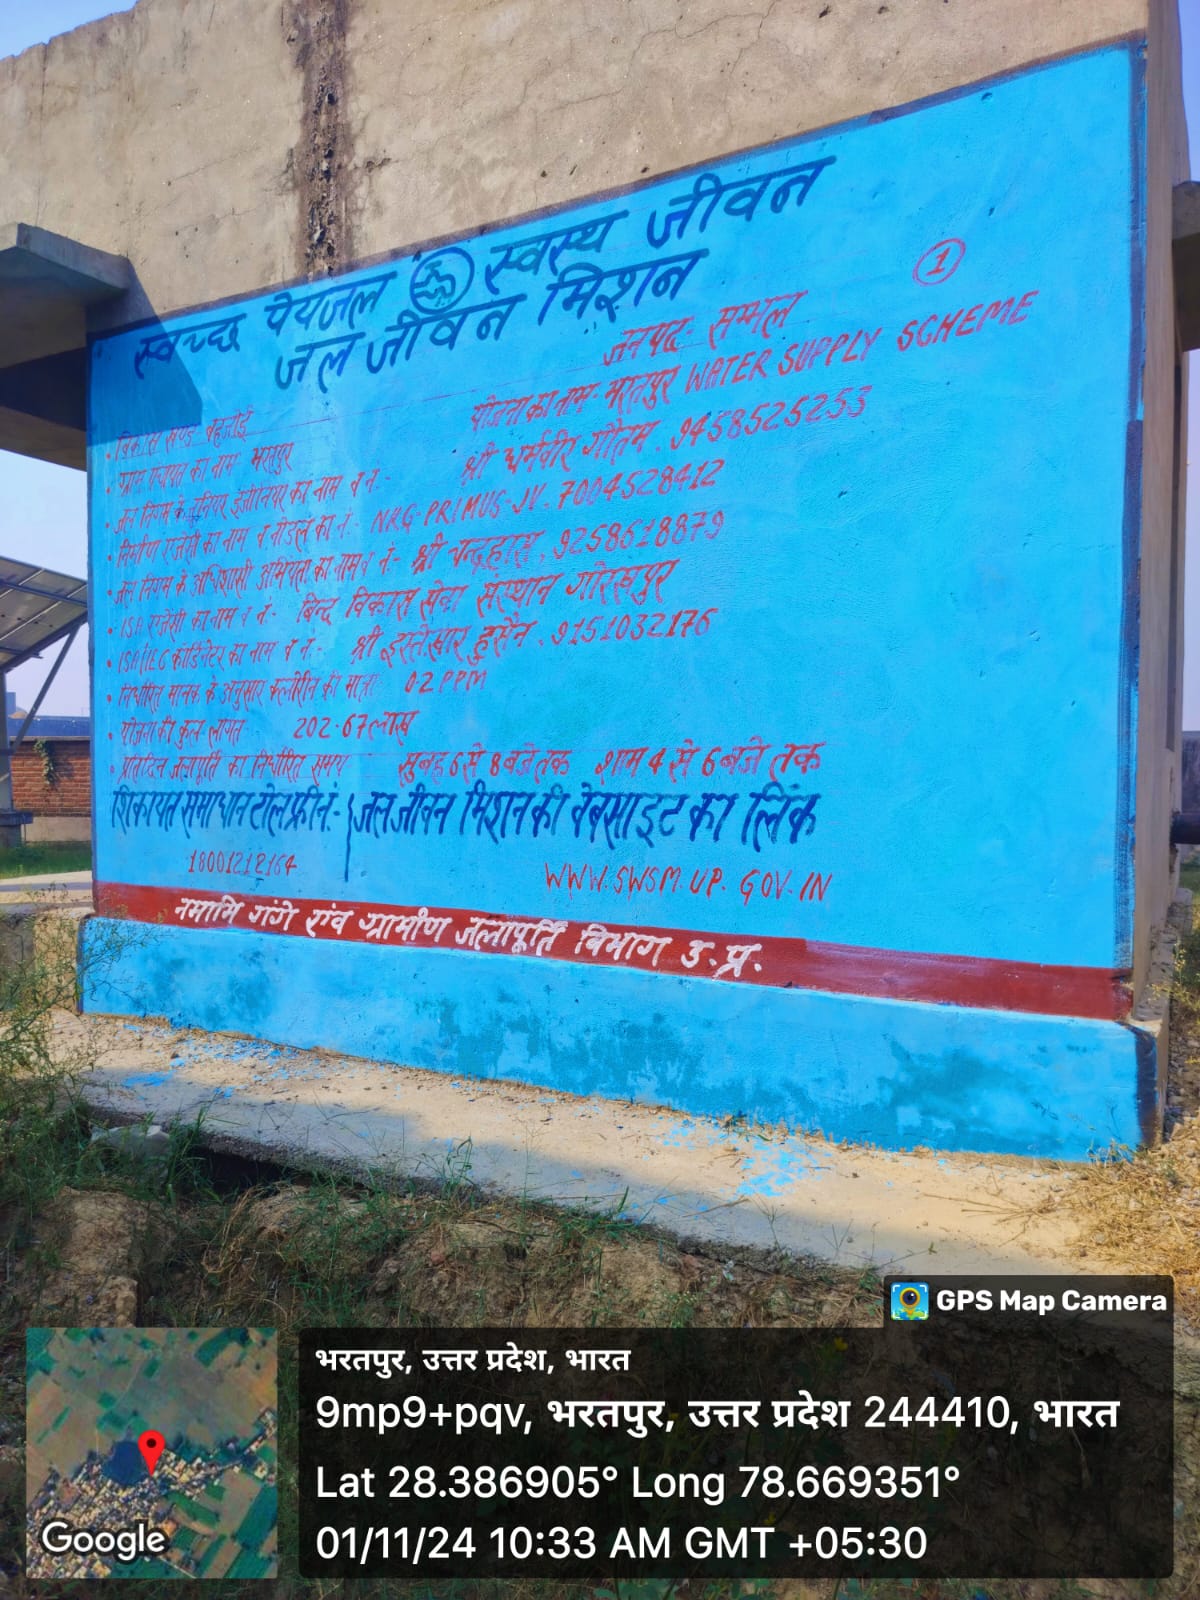 स्वच्छ पेयजल स्वस्थ जीवन
जल जीवन मिशन
1
जनपद- सम्भल
विकास खण्ड बहजोई योजना का नाम- भरतपुर WATER SUPPLY SCHEME
ग्राम पंचायत का नाम भरतपुर
जल निगम के जूनियर इंजीनियर का नाम व नं.- श्री धर्मवीर गौतम. 9458525253
निर्माण एजेंसी का नाम व नोडल का नं.- NKG-PRIMUS-JV. 7004528412
जल निगम के अधिशासी अभियंता का नाम व नं- श्री चन्द्रहास, 9258618879
ISA एजेंसी का नाम व नं- बिन्द विकास सेवा संस्थान गोरखपुर
ISA/IEC कोर्डिनेटर का नाम व नं.- श्री इस्तेखार हुसैन. 9151032176
निर्धारित मानक के अनुसार क्लोरीन की मात्रा 0.2 PPM
योजना की कुल लागत 202.67 लाख
प्रतिदिन जलापूर्ति का निर्धारित समय सुबह 6 से 8 बजे तक शाम 4 से 6 बजे तक
शिकायत समाधान टोल फ्री नं.- जल जीवन मिशन की वेबसाइट का लिंक
18001212164 WWW.SWSM.UP.GOV.IN
नमामि गंगे एंव ग्रामीण जलापूर्ति विभाग उ.प्र.
GPS Map Camera
भरतपुर, उत्तर प्रदेश, भारत
9mp9+pqv, भरतपुर, उत्तर प्रदेश 244410, भारत
Lat 28.386905° Long 78.669351°
01/11/24 10:33 AM GMT +05:30
Google